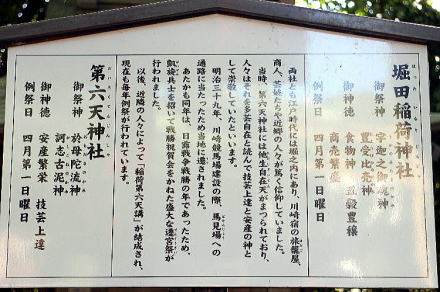 堀田稲荷神社
御祭神 宇迦之御魂神
豊受比売神
御神徳 食物神 五穀豊穣
商売繁盛
例祭日 四月第一日曜日
両社とも江戸時代には堀之内にあり、川崎宿の旅籠屋、
商人、芸妓たちや近郷の人々が篤く信仰していました。
当時、第六天神社には他生自在天がまつられており、
人々はそれを多芸自在と読んで技芸上達と安産の神と
して崇敬していたといいます。
明治三十九年、川崎競馬場建設の際、馬見場への
通路に当たったため当地に遷されました。
あたかも同年は、日露戦争戦勝の年であったため、
凱旋兵士を招いて戦勝祝賀会をかねた盛大な遷宮祭が
行われました。
以後、近隣の人々によって「稲荷第六天講」が結成され、
現在も毎年例祭が行われています。
第六天神社
御祭神 於母陀流神
訶志古泥神
御神徳 安産繁栄 技芸上達
例祭日 四月第一日曜日